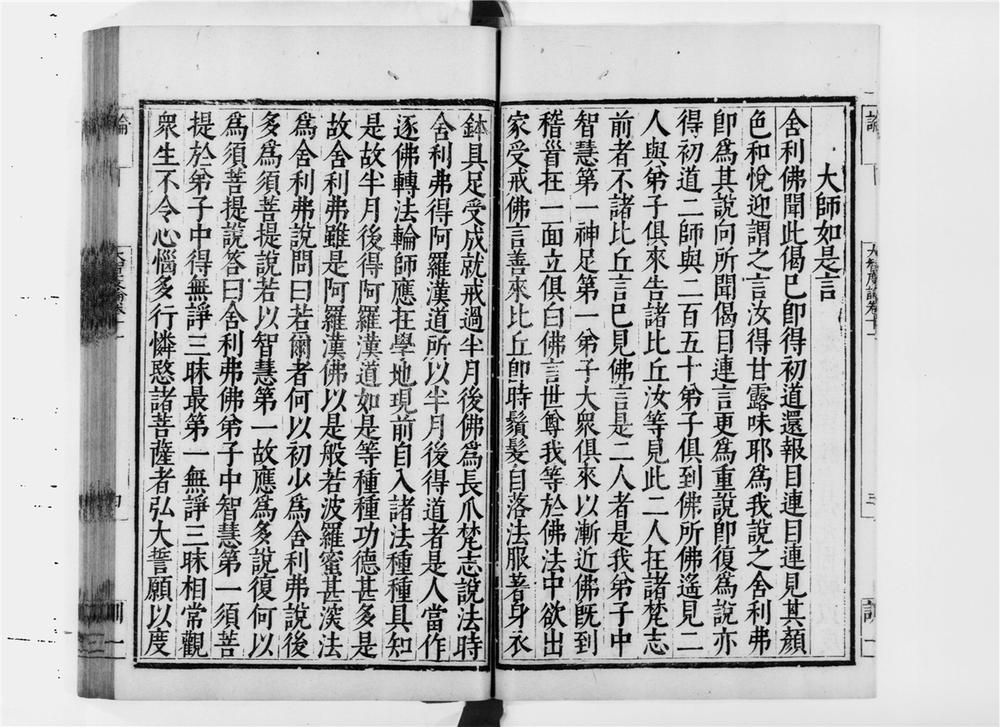 大師如是言
舍利弗聞此偈已即得初道還報目連目連見其顏
色和悅迎謂之言汝得甘露味耶為我說之舍利弗
即為其說向所聞偈目連言更為重說即復為說亦
得初道二師與二百五十弟子俱到佛所佛遙見二
人與弟子俱來告諸比丘汝等見此二人在諸梵志
前者不諸比丘言已見佛言是二人者是我弟子中
智慧第一神足第一弟子大眾俱來以漸近佛既到
稽首在一面立俱白佛言世尊我等於佛法中欲出
家受戒佛言善來比丘即時鬚髮自落法服著身衣
鉢具足受成就戒過半月後佛為長爪梵志說法時
舍利弗得阿羅漢道所以半月後得道者是人當作
逐佛轉法輪師應在學地現前自入諸法種種具知
是故半月後得阿羅漢道如是等種種功德甚多是
故舍利弗雖是阿羅漢佛以是般若波羅蜜甚深法
為舍利弗說問曰若爾者何以初少為舍利弗說後
多為須菩提說若以智慧第一故應為多說復何以
為須菩提說答曰舍利弗佛弟子中智慧第一須菩
提於弟子中得無諍三昧最第一無諍三昧相常觀
眾生不令心惱多行憐愍諸菩薩者弘大誓願以度